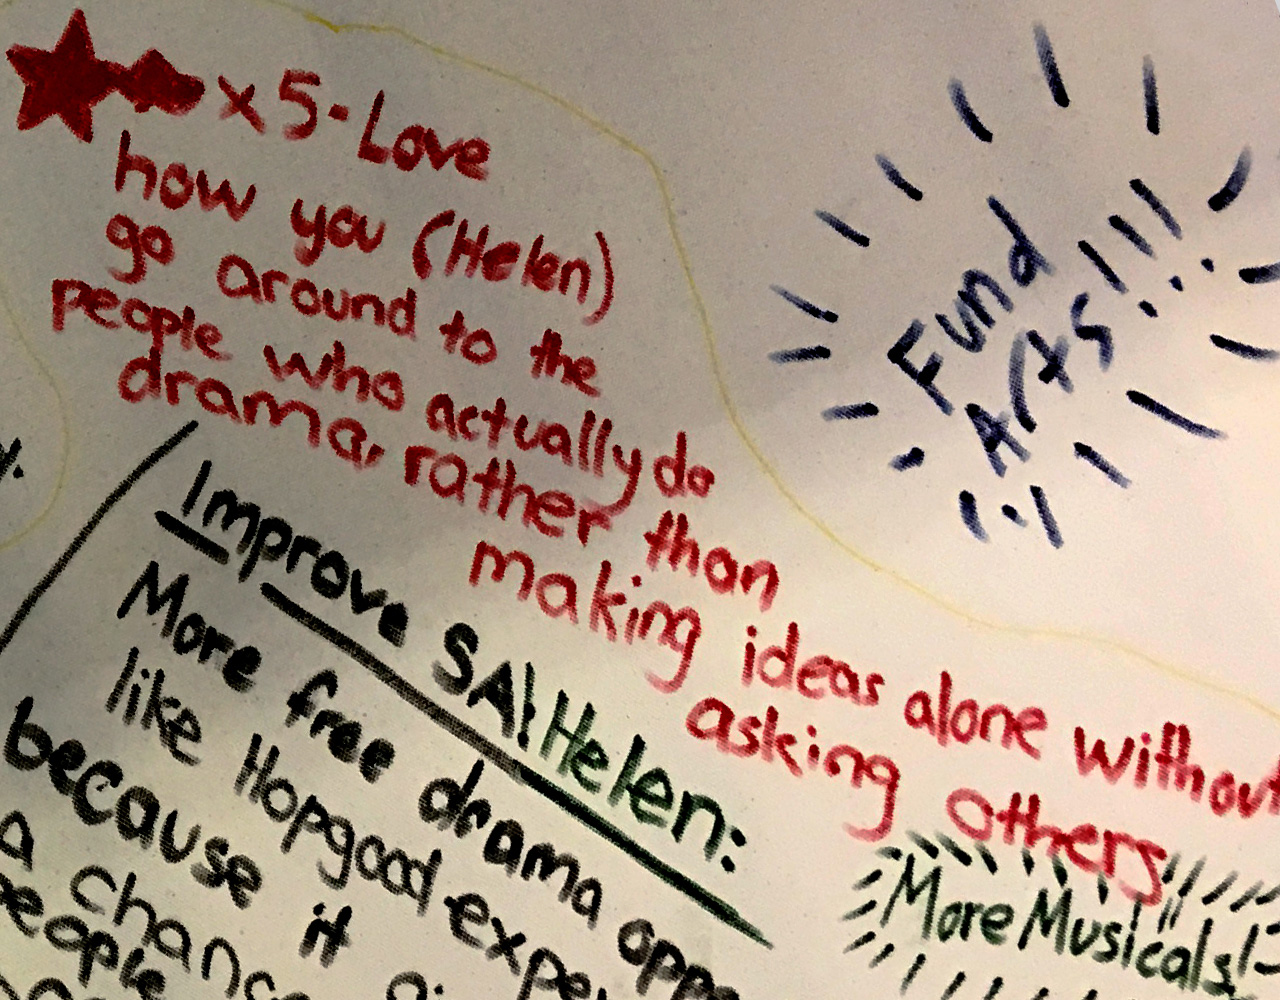 x 5 - Love
how you (Helen)
go around to the
people who actually do
drama, rather than
making ideas alone without
asking others
Fund
Arts!!!
Improve SA! Helen:
More free drama
like Hopgood
because it
A
people
More Musicals!